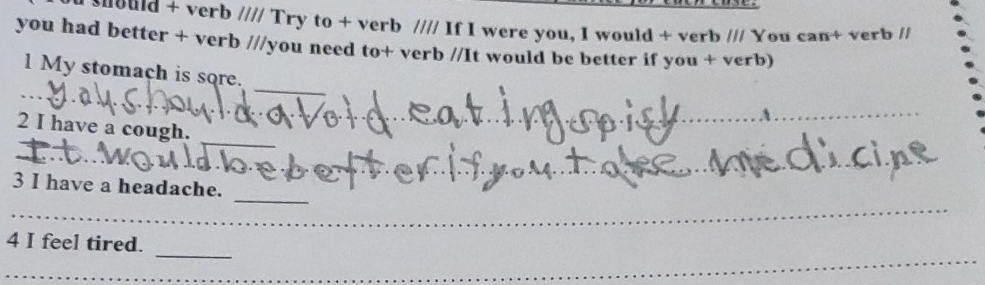 should + verb //// Try to + verb //// If I were you, I would + verb /// You can+ verb //
you had better + verb ///you need to+ verb //It would be better if you + verb)
1 My stomach is sore.
you should avoid eating spisy
2 I have a cough.
It would be better if you take medicine
3 I have a headache.
4 I feel tired.